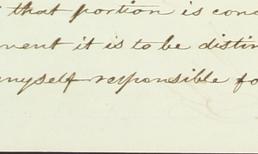 that portion is conc
ment it is to be distin
myself responsible fo